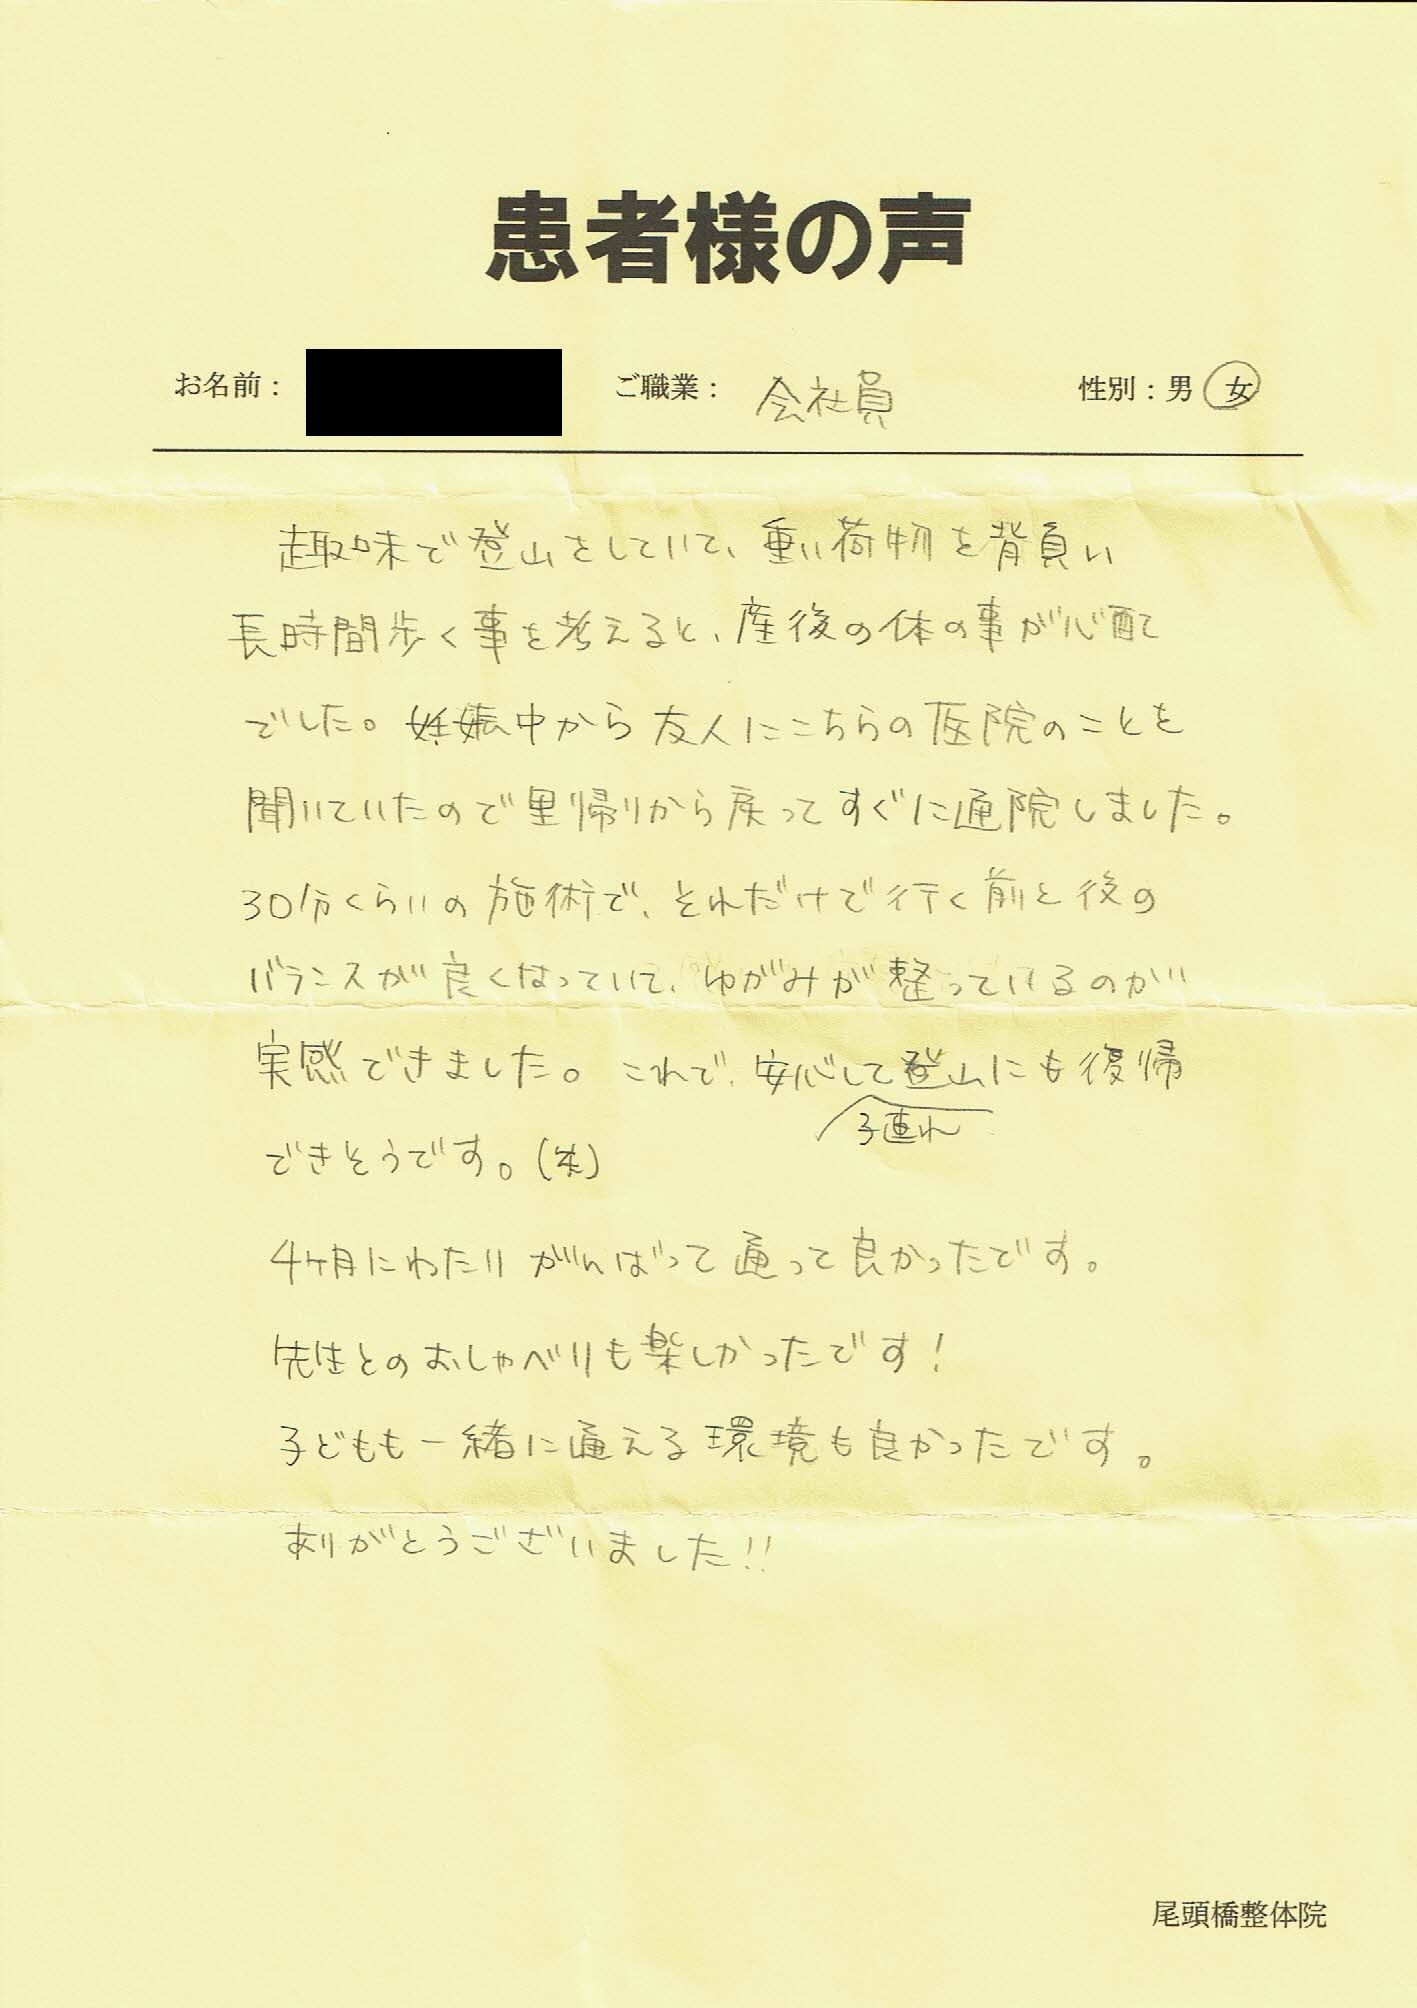 患者様の声
お名前： ご職業： 会社員 性別：男 女
趣味で登山をしていて、重い荷物を背負い
長時間歩く事を考えると、産後の体の事が心配
でした。妊娠中から友人にこちらの医院のことを
聞いていたので里帰りから戻ってすぐに通院しました。
30分くらいの施術で、それだけで行く前と後の
バランスが良くなっていて、ゆがみが整っているのが
実感できました。これで、安心して登山にも復帰
子連れ
できそうです。(笑)
4ヶ月にわたりがんばって通って良かったです。
先生とのおしゃべりも楽しかったです！
子どもも一緒に通える環境も良かったです。
ありがとうございました!!
尾頭橋整体院